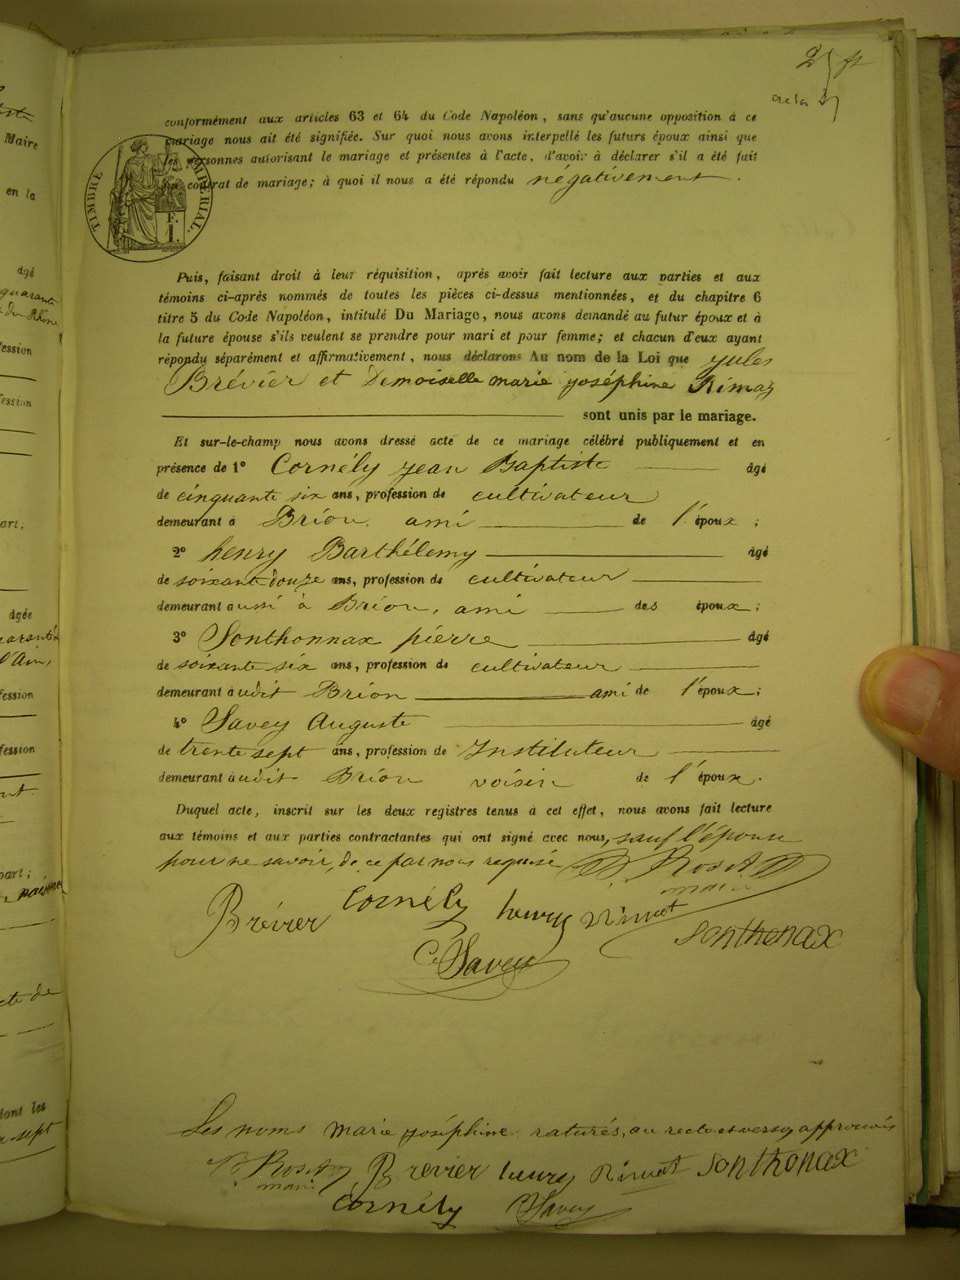 acte 27
conformément aux articles 63 et 64 du Code Napoléon, sans qu'aucune opposition à ce
mariage nous ait été signifiée. Sur quoi nous avons interpellé les futurs époux ainsi que
les personnes autorisant le mariage et présentes à l'acte, d'avoir à déclarer s'il a été fait
un contrat de mariage; à quoi il nous a été répondu négativement.
TIMBRE IMPÉRIAL
Puis, faisant droit à leur réquisition, après avoir fait lecture aux parties et aux
témoins ci-après nommés de toutes les pièces ci-dessus mentionnées, et du chapitre 6
titre 5 du Code Napoléon, intitulé Du Mariage, nous avons demandé au futur époux et à
la future épouse s'ils veulent se prendre pour mari et pour femme; et chacun d'eux ayant
répondu séparément et affirmativement, nous déclarons Au nom de la Loi que Jules
Brévier et Demoiselle marie joséphine
sont unis par le mariage.
Et sur-le-champ nous avons dressé acte de ce mariage célébré publiquement et en
présence de 1° Cornély jean Baptiste âgé
de cinquante six ans, profession de cultivateur
demeurant à Brion. ami de l'époux;
2° henry Barthélemy âgé
de soixante douze ans, profession de cultivateur
demeurant aussi à Brion, ami des époux;
3° Sonthonnax pierre âgé
de soixante six ans, profession de cultivateur
demeurant audit Brion ami de l'époux;
4° Savey Auguste âgé
de trente sept ans, profession de Instituteur
demeurant audit Brion voisin de l'époux.
Duquel acte, inscrit sur les deux registres tenus à cet effet, nous avons fait lecture
aux témoins et aux parties contractantes qui ont signé avec nous, sauf l'épouse
pour ne savoir, de ce par nous requise
Brévier Cornély henry Sonthonax
Savey
Les noms marie joséphine raturés, au recto et verso, approuvés
Brévier henry Sonthonax
Cornély Savey